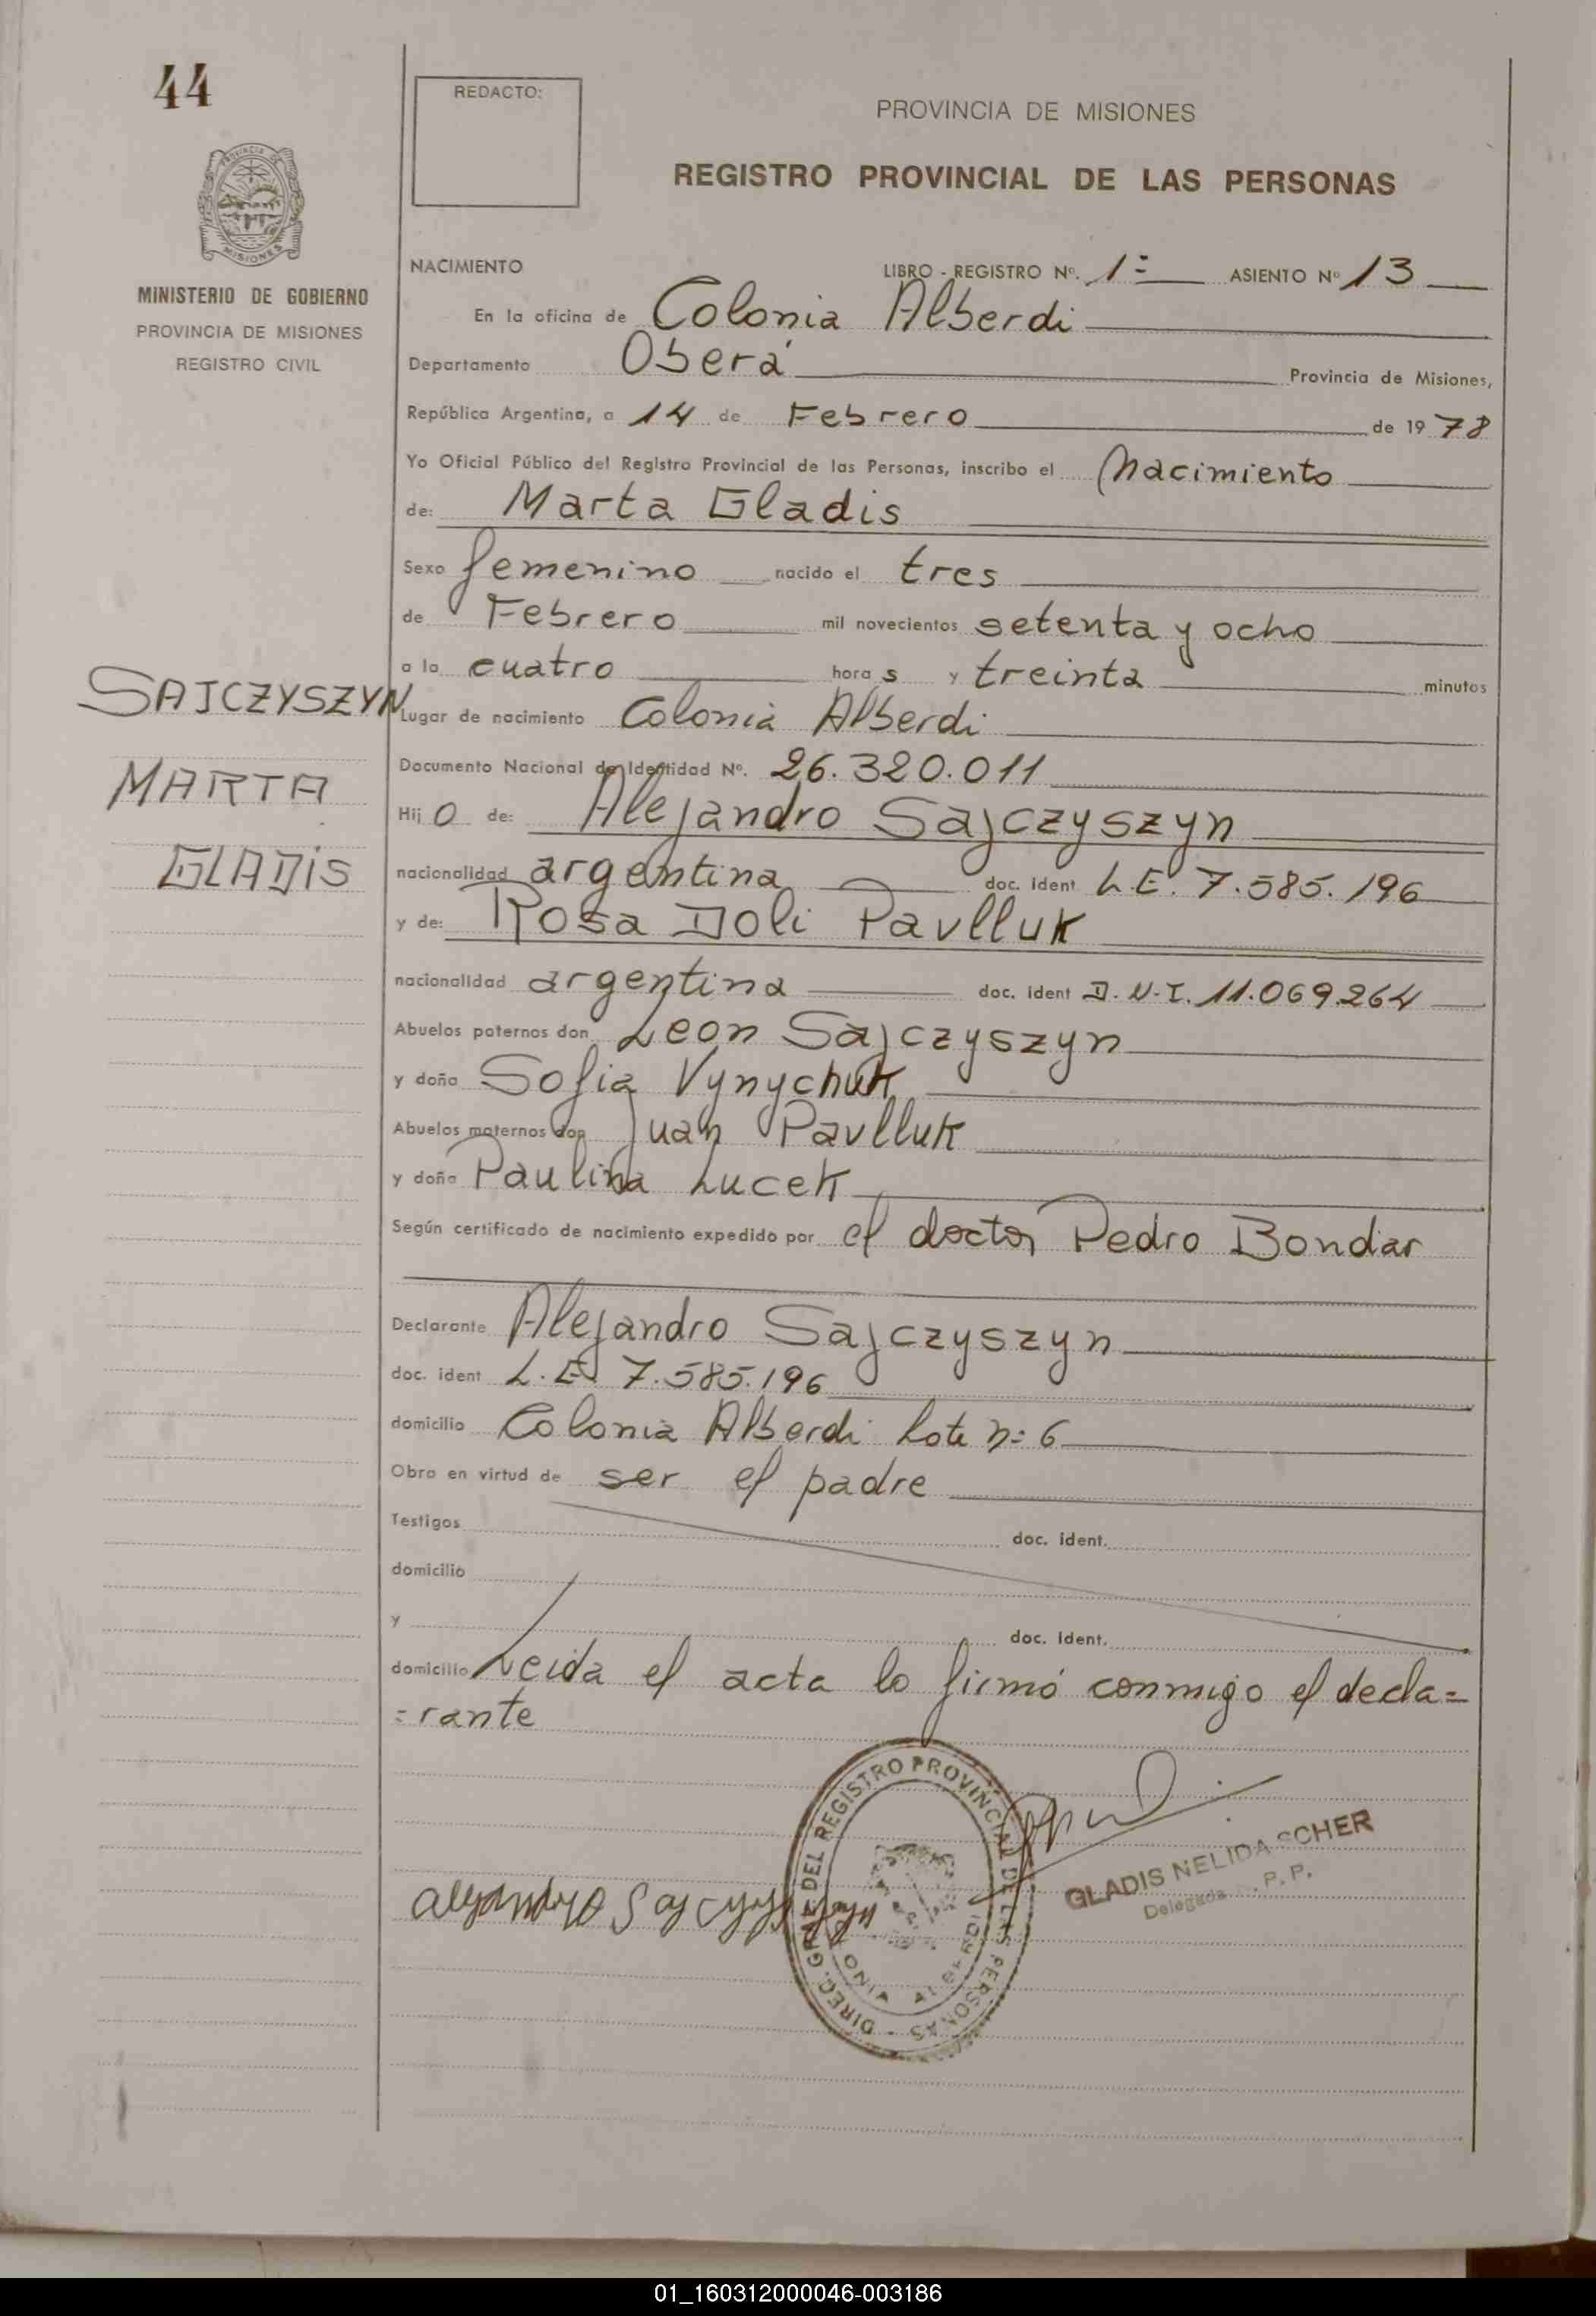 44
REDACTO:
PROVINCIA DE MISIONES
REGISTRO PROVINCIAL DE LAS PERSONAS
PROVINCIA DE
MISIONES
MINISTERIO DE GOBIERNO
PROVINCIA DE MISIONES
REGISTRO CIVIL
NACIMIENTO LIBRO - REGISTRO Nº. 1= ASIENTO Nº 13
En la oficina de Colonia Alberdi
Departamento Oberá Provincia de Misiones,
República Argentina, a 14 de Febrero de 1978
Yo Oficial Público del Registro Provincial de las Personas, inscribo el Nacimiento
de: Marta Gladis
Sexo femenino nacido el tres
de Febrero mil novecientos setenta y ocho
a la cuatro hora s y treinta minutos
SAJCZYSZYN
Lugar de nacimiento Colonia Alberdi
MARTA
Documento Nacional de Identidad Nº. 26.320.011
Hij o de: Alejandro Sajczyszyn
GLADIS
nacionalidad argentina doc. ident L.E. 7.585.196
y de: Rosa Doli Pavlluk
nacionalidad argentina doc. ident D.N.I. 11.069.264
Abuelos paternos don Leon Sajczyszyn
y doña Sofia Vynychuk
Abuelos maternos don Juan Pavlluk
y doña Paulina Lucek
Según certificado de nacimiento expedido por el doctor Pedro Bondar
Declarante Alejandro Sajczyszyn
doc. ident L.E. 7.585.196
domicilio Colonia Alberdi Lote n= 6
Obra en virtud de ser el padre
Testigos doc. ident.
domicilio
y doc. ident.
domicilio Leida el acta lo firmó conmigo el decla=
=rante
DIREC. GRAL. DEL REGISTRO PROVINCIAL DE LAS PERSONAS
GLADIS NELIDA SCHER
Delegada P. P.
01_160312000046-003186